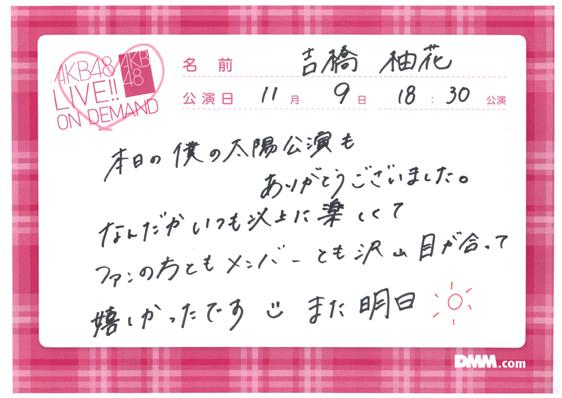 AKB48
LIVE!!
ON DEMAND
AKB
48
名前 吉橋 柚花
公演日 11月 9日 18:30 公演
本日の僕の太陽公演も
ありがとうございました。
なんだかいつも以上に楽しくて
ファンの方ともメンバーとも沢山目が合って
嬉しかったです また明日
DMM.com